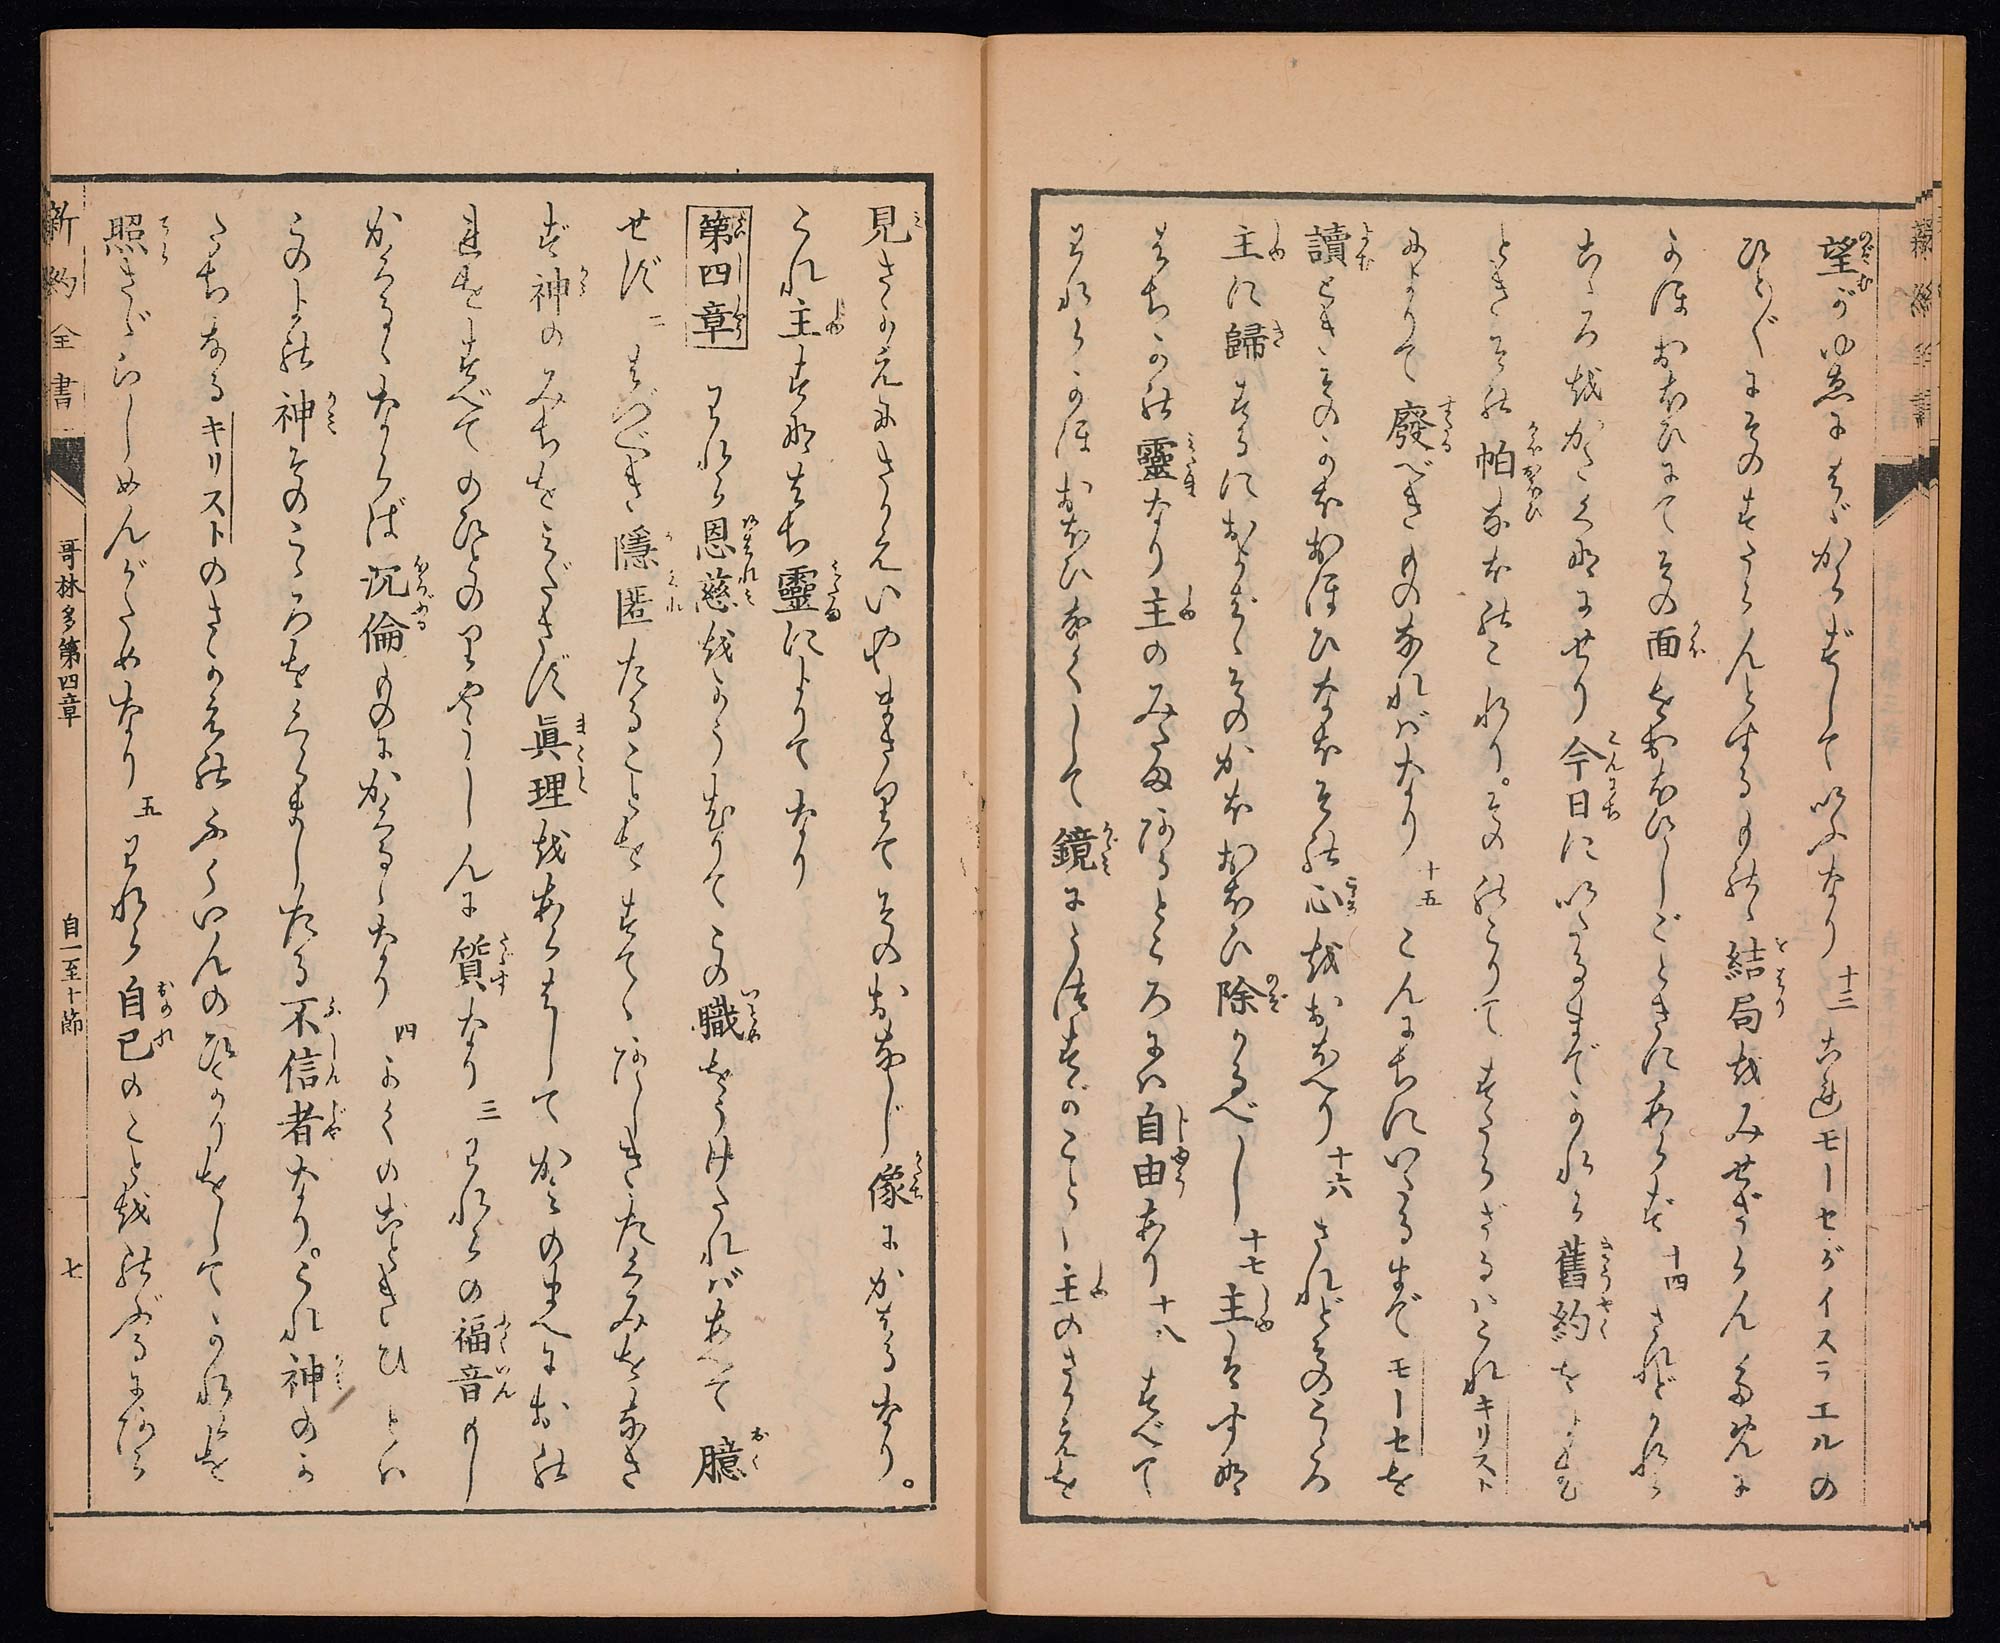 望がゆゑにはゞからずしていふなり 十三 これモーセがイスラエルの
ひと〴〵にそのすたらんとするものゝ結局をみせざらんために
かほおほひにてその面をおほひしごときにあらず 十四 されどかれら
こゝろをかたくなにせり今日にいたるまでかれら舊約をよむ
ときその帕なほのこれり。そののこりてすたらざるはこれキリスト
によりて廢べきものなればなり 十五 こんにちにいたるまでモーセを
讀ときそのかほおほひなほその心をおほへり 十六 されどそのこゝろ
主に歸するにおよばゞそのかほおほひ除かるべし 十七 主はすな
はちかの靈なり主のみたまあるところには自由あり 十八 すべて
われらかほおほひなくして鏡にうつすがごとく主のさかえを
見さかえにさかえいやまさりてそのおなじ像にかはるなり。
これ主すなはち靈によりてなり
第四章 われら恩慈をかうむりてこの職をうけたればあへて臆
せず 二 はづべき隱匿たることをすてゝあしきたくみをなさ
ず神のみちをみださず眞理をあらはしてかみのまへにおの
れをすべてのひとのりやうしんに質なり 三 われらの福音もし
かくるゝならば沉倫ものにかくるゝなり 四 かくのごときひとは
このよの神そのこゝろをくらましたる不信者なり。これ神のか
たちなるキリストのさかえのふくいんのひかりをしてかれらを
照さゞらしめんがためなり 五 われら自己のことをのぶるにあら
新約全書 哥林多第四章 自一至十節 七